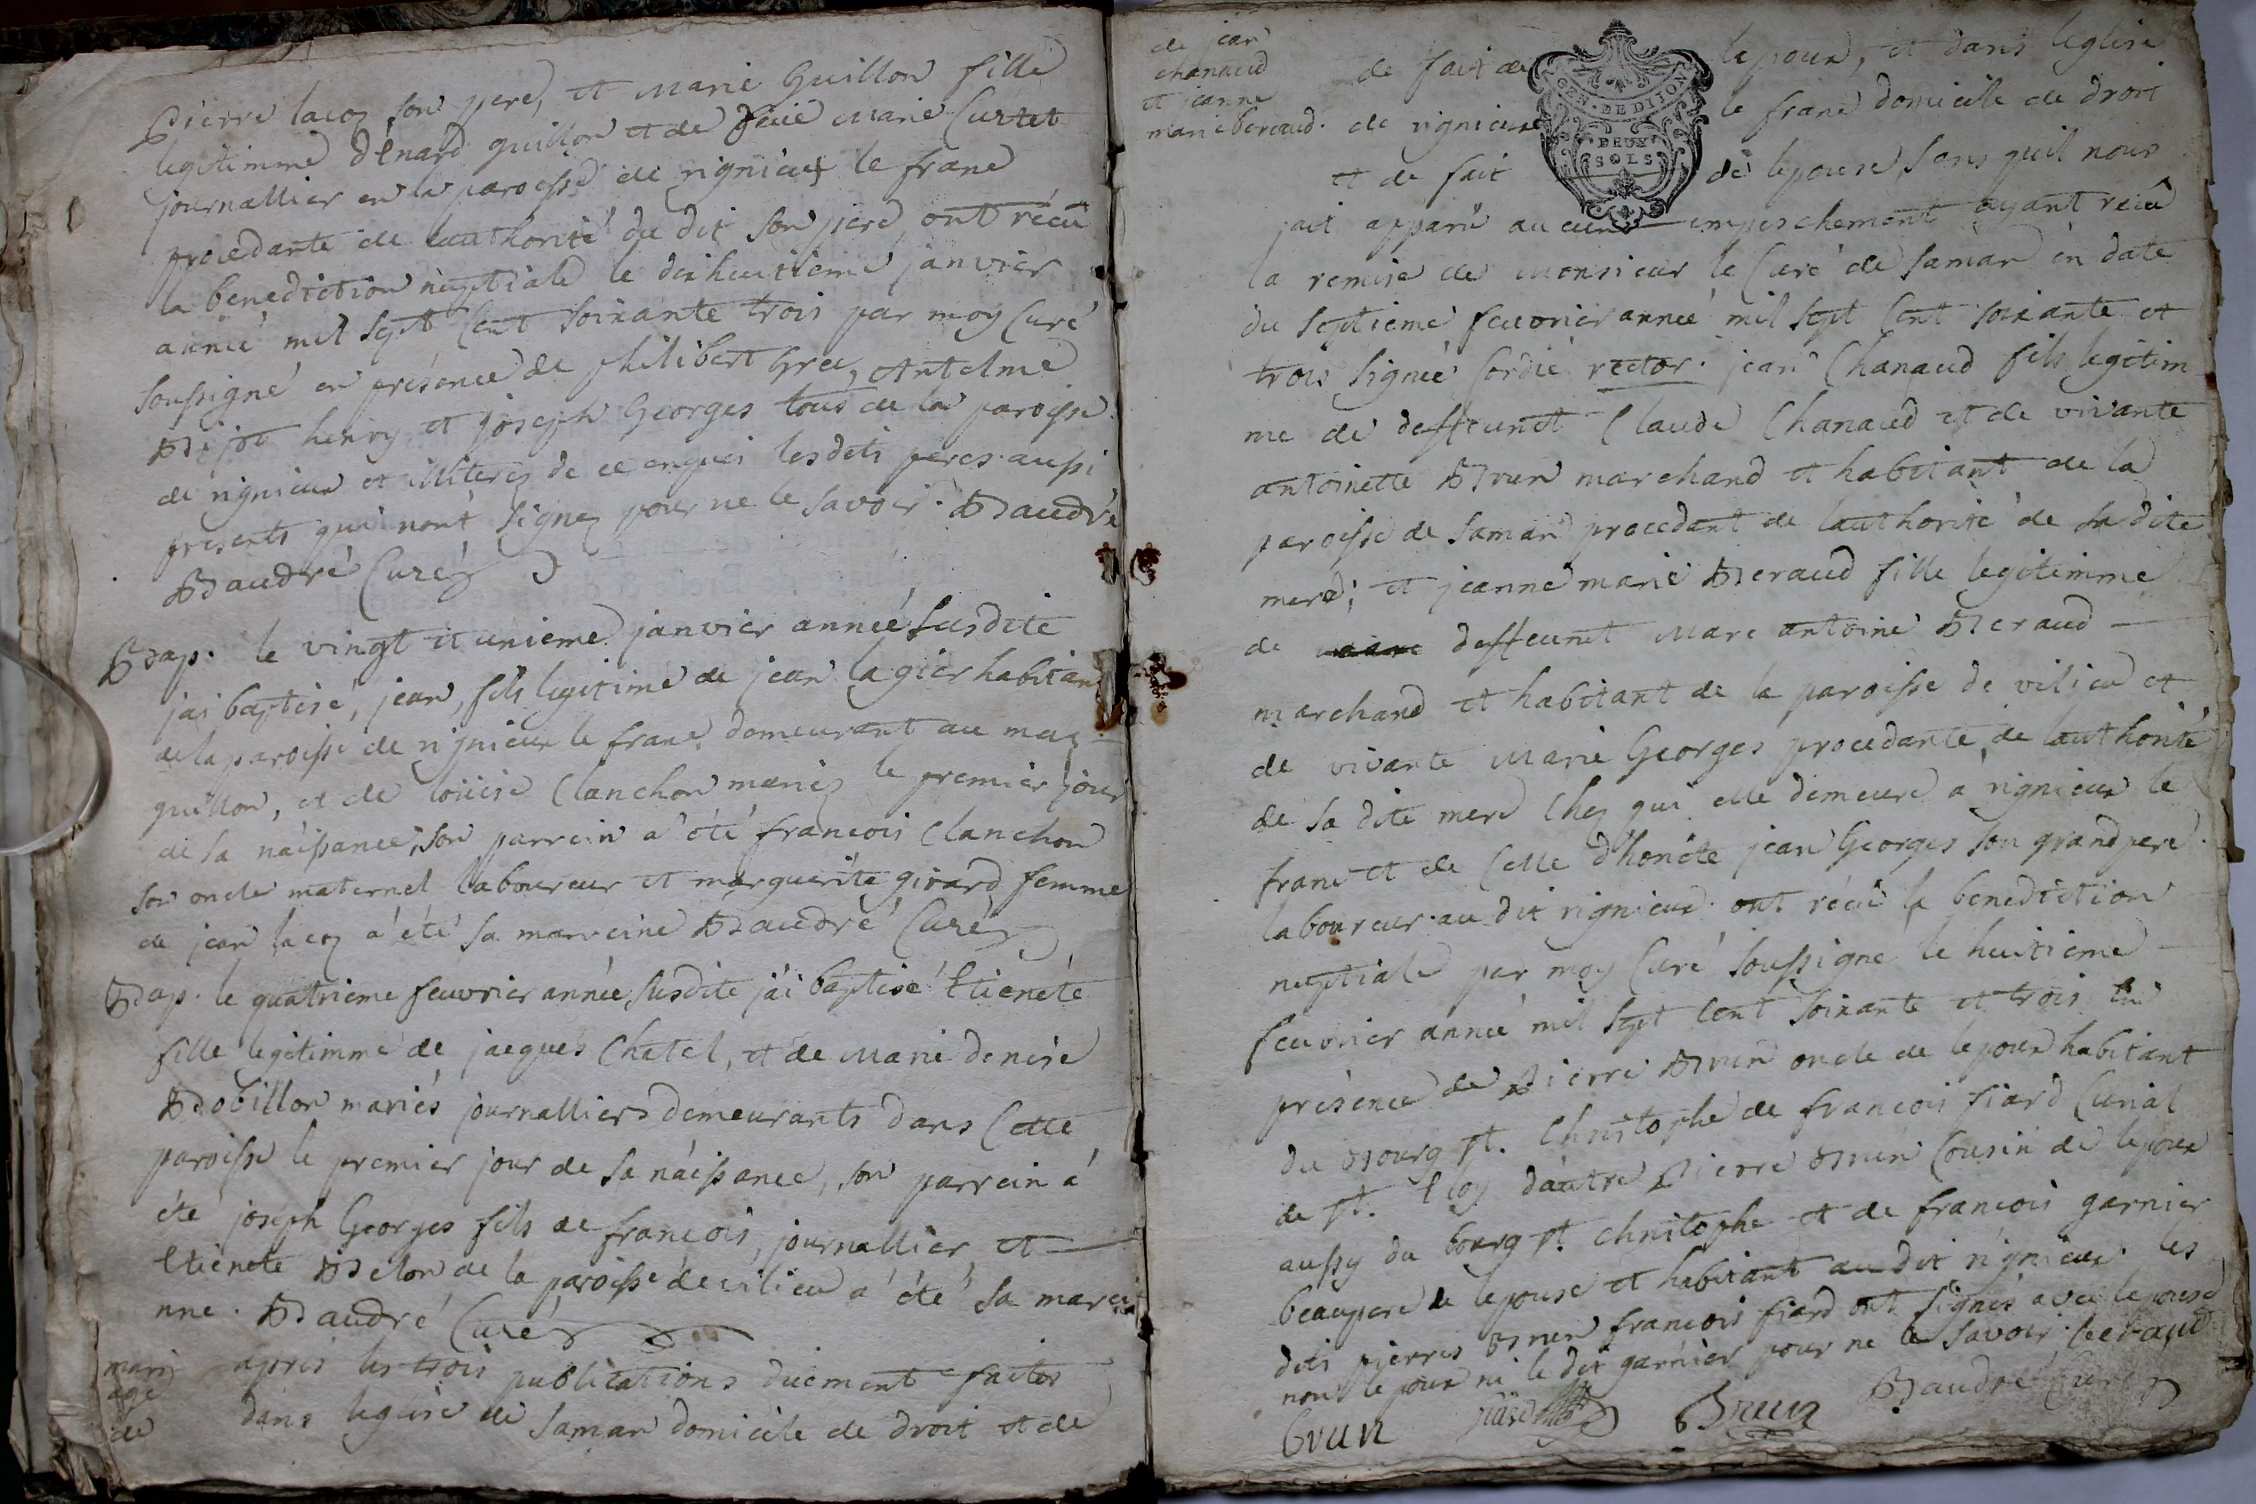 Pierre lacoz son pere, et Marie Guillon fille
legitimme dénard guillon et de feüe Marie Curtet
journallier en la paroisse de rignieux le franc
procedante de lauthorité du dit son pere, ont récu
la benediction nuptiale le dixhuitieme janvier
année mil sept Cent soixante trois par moy Curé
soussigné en présence de philibert grec, Antelme
henry et joseph Georges tous de la paroisse
de rignieux et illiterez de ce enquis lesdits peres aussi
presents qui n'ont signez pour ne le savoir. Baudré
Baudré Curé
Bap. le vingt et unieme janvier année susdite
jai baptisé, jean, fils legitime de jean lagier habitant
de la paroisse de rignieux le franc demeurant au mas
guillon, et de loüise Clanchon mariez le premier jour
de sa náissance, son parrein a été francois Clanchon
son oncle maternel laboureur et marguerite girard femme
de jean lacoz a été sa marreine Baudré Curé
Bap. le quatrieme feuvrier année susdite jái baptisé Etiénété
fille legitimme de jacques Chatel, et de Marie denise
Bobillon mariés journalliers demeurants dans Cette
paroisse le premier jour de sa náissance, son parrein á
été joseph Georges fils de francois, journallier et
Etienete Belon de la paroisse de vilieu a été sa marrei
nne. Baudré Curé
mari
age
de
apres les trois publications düement faites
dans leglise de Samar domicile de droit et de
de jean
chanaud
et jeanne
marie beraud.
de fait de lepoux, et dans leglise
de rignieux le franc domicile de droit
GEN. DE DIJON
DEUX
SOLS
et de fait de lepouse, sans quil nous
soit apparu aucuns empeschement ayant recu
la remise de Monsieur le Curé de Samar en date
du septieme feuvrier année mil sept Cent soixante et
trois signée Cordié rector. jean Chanaud fils legitim
me de deffeunct Claude Chanaud et de vivante
antoinette Brun marchand et habitant de la
paroisse de Samar procedant de lauthorité de sa dite
mere; et jeanne marie Beraud fille legitimme
de deffeunct Marc antoine Beraud
marchand et habitant de la paroisse de vilieu et
de vivante Marie Georges procedante de lauthorité
de sa dite mere Chez qui elle demeure a rignieux le
franc et de Celle d'honéte jean Georges son grand pere
laboureur au dit rignieux ont récu la benediction
nuptiale par moy Curé soussigné le huitieme
feuvrier année mil sept Cent soixante et trois en
présence de Pierre Brun oncle de lepoux habitant
du Bourg st. Christophe de francois fiard Curial
de st. Eloy dautre Pierre Brun Cousin de lepoux
aussy du bourg st. christophe et de francois garnier
beaupere de lepouse et habitant au dit rignieux. les
dits pierres Brun francois fiard ont signés avec lepouse
non lepoux ni le dit garnier pour ne le savoir. beraud
brun fiard Brun Baudré Curé